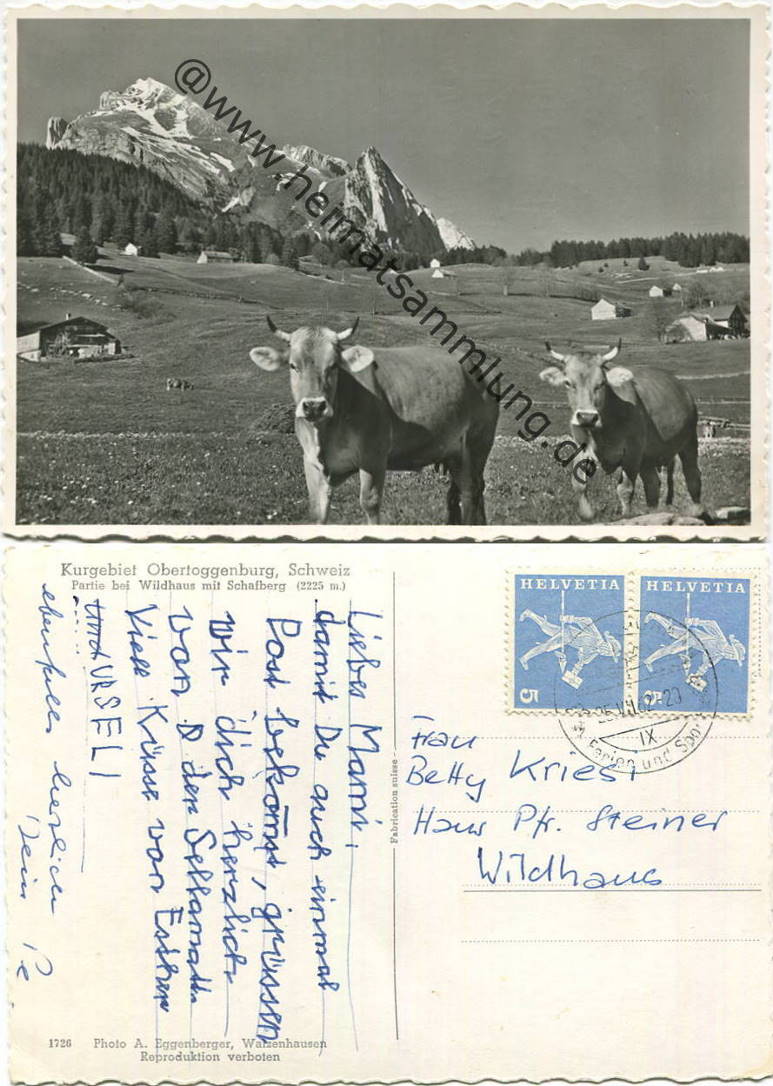 @www.heimatsammlung.de
Kurgebiet Obertoggenburg, Schweiz
Partie bei Wildhaus mit Schafberg (2225 m.)
Liebes Mami,
damit Du auch einmal
Post bekommst, grüssen
wir dich herzlich
von der Sellamatt
Viele Küsse von Esther
und URSELI
ebenfalls herzlich
Dein
1726 Photo A. Eggenberger, Walzenhausen
Reproduktion verboten
Fabrication suisse
HELVETIA
5
HELVETIA
5
IX
Ferien und Spo
Frau
Betty Kriesi
Haus Pfr. Steiner
Wildhaus